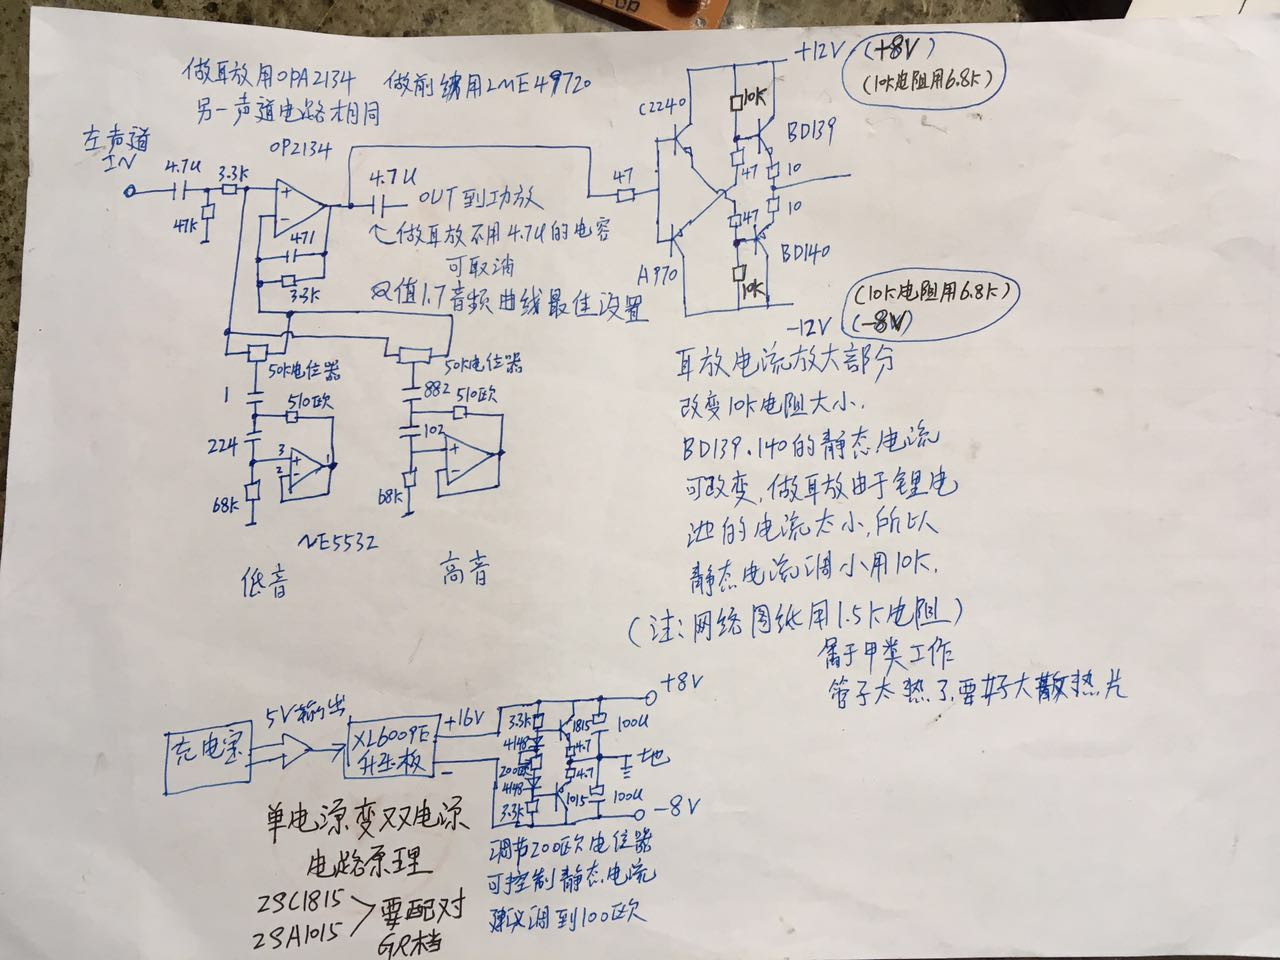 做耳放用OPA2134
做前级用LME49720
另一声道电路相同
左声道
IN
4.7U
3.3K
47K
OP2134
+
-
471
3.3K
4.7U
OUT到功放
做耳放不用4.7U的电容
可取消
Q值1.7音频曲线最佳设置
50K电位器
1
510欧
224
3
+
2
-
1
68K
NE5532
低音
50K电位器
882
510欧
102
+
-
68K
高音
+12V
(+8V)
(10K电阻用6.8K)
C2240
10K
BD139
47
47
10
47
10
A970
10K
BD140
(10K电阻用6.8K)
-12V
(-8V)
耳放电流放大部分
改变10K电阻大小.
BD139.140的静态电流
可改变,做耳放由于锂电
池的电流太小,所以
静态电流调小用10K.
(注:网络图纸用1.5K电阻)
属于甲类工作
管子太热了,要好大散热片
充电宝
5V输出
XL6009E
升压板
+16V
-
3.3K
4148
200欧
4148
3.3K
1815
4.7
4.7
1015
100U
100U
+8V
地
-8V
单电源变双电源
电路原理
2SC1815
2SA1015
要配对
GR档
调节200欧电位器
可控制静态电流
建议调到100欧